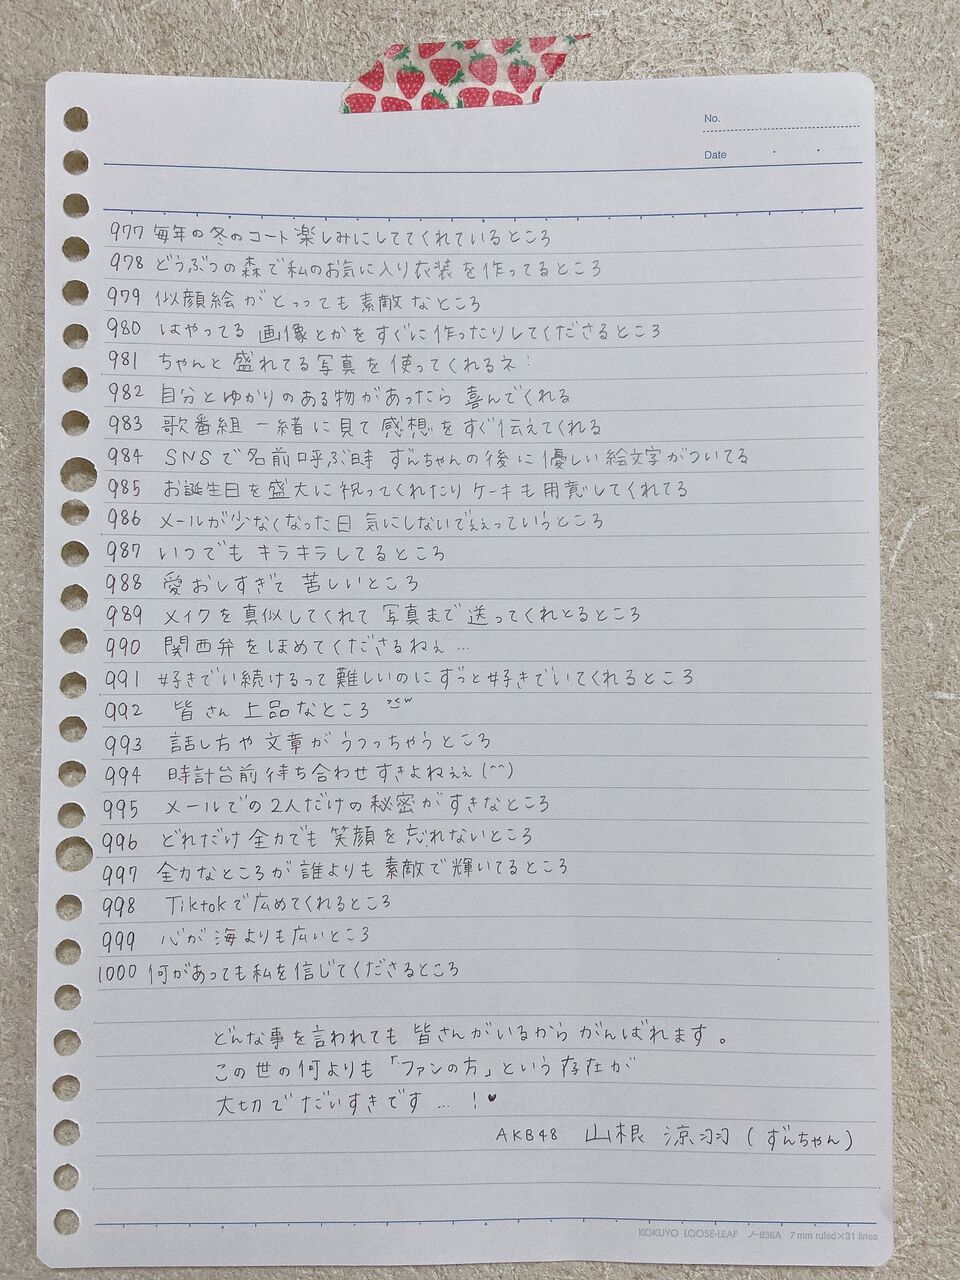 No.
Date
977 毎年の冬のコート楽しみにしててくれているところ
978 どうぶつの森で私のお気に入り衣装を作ってるところ
979 似顔絵がとっっても素敵なところ
980 はやってる画像とかをすぐに作ったりしてくださるところ
981 ちゃんと盛れてる写真を使ってくれるネ!
982 自分とゆかりのある物があったら喜んでくれる
983 歌番組一緒に見て感想をすぐ伝えてくれる
984 SNSで名前呼ぶ時ずんちゃんの後に優しい絵文字がついてる
985 お誕生日を盛大に祝ってくれたりケーキも用意してくれてる
986 メールが少なくなった日気にしないでぇぇっていうところ
987 いつでもキラキラしてるところ
988 愛おしすぎて苦しいところ
989 メイクを真似してくれて写真まで送ってくれとるところ
990 関西弁をほめてくださるねぇ…
991 好きでい続けるって難しいのにずっと好きでいてくれるところ
992 皆さん上品なところ
993 話し方や文章がうつっちゃうところ
994 時計台前待ち合わせすきよねぇぇ(^^)
995 メールでの2人だけの秘密がすきなところ
996 どれだけ全力でも笑顔を忘れないところ
997 全力なところが誰よりも素敵で輝いてるところ
998 Tiktokで広めてくれるところ
999 心が海よりも広いところ
1000 何があっても私を信じてくださるところ
どんな事を言われても皆さんがいるからがんばれます。
この世の何よりも「ファンの方」という存在が
大切でだいすきです…!♥
AKB48 山根 涼羽(ずんちゃん)
KOKUYO LOOSE-LEAF ノ-836A 7mm ruled×31 lines